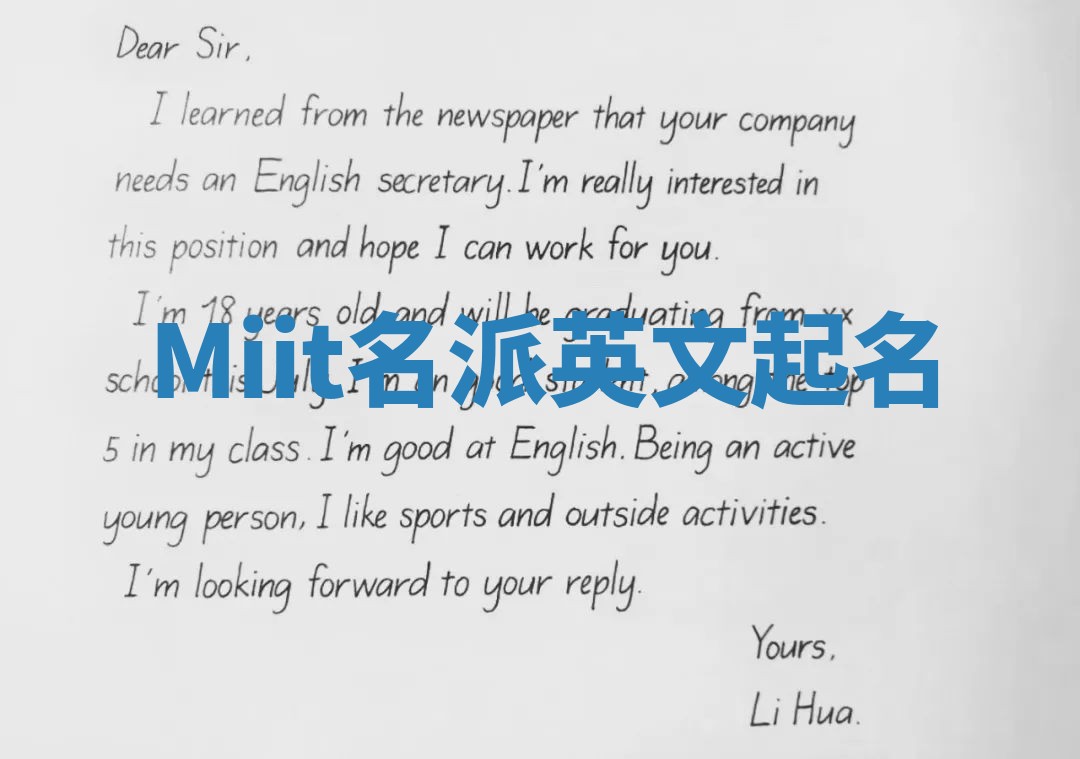 Dear Sir,
I learned from the newspaper that your company
needs an English secretary. I'm really interested in
this position and hope I can work for you.
I'm 18 years old and will be graduating from xx
Miit名派英文起名
school this July. I'm an good student, among the top
5 in my class. I'm good at English. Being an active
young person, I like sports and outside activities.
I'm looking forward to your reply.
Yours,
Li Hua.